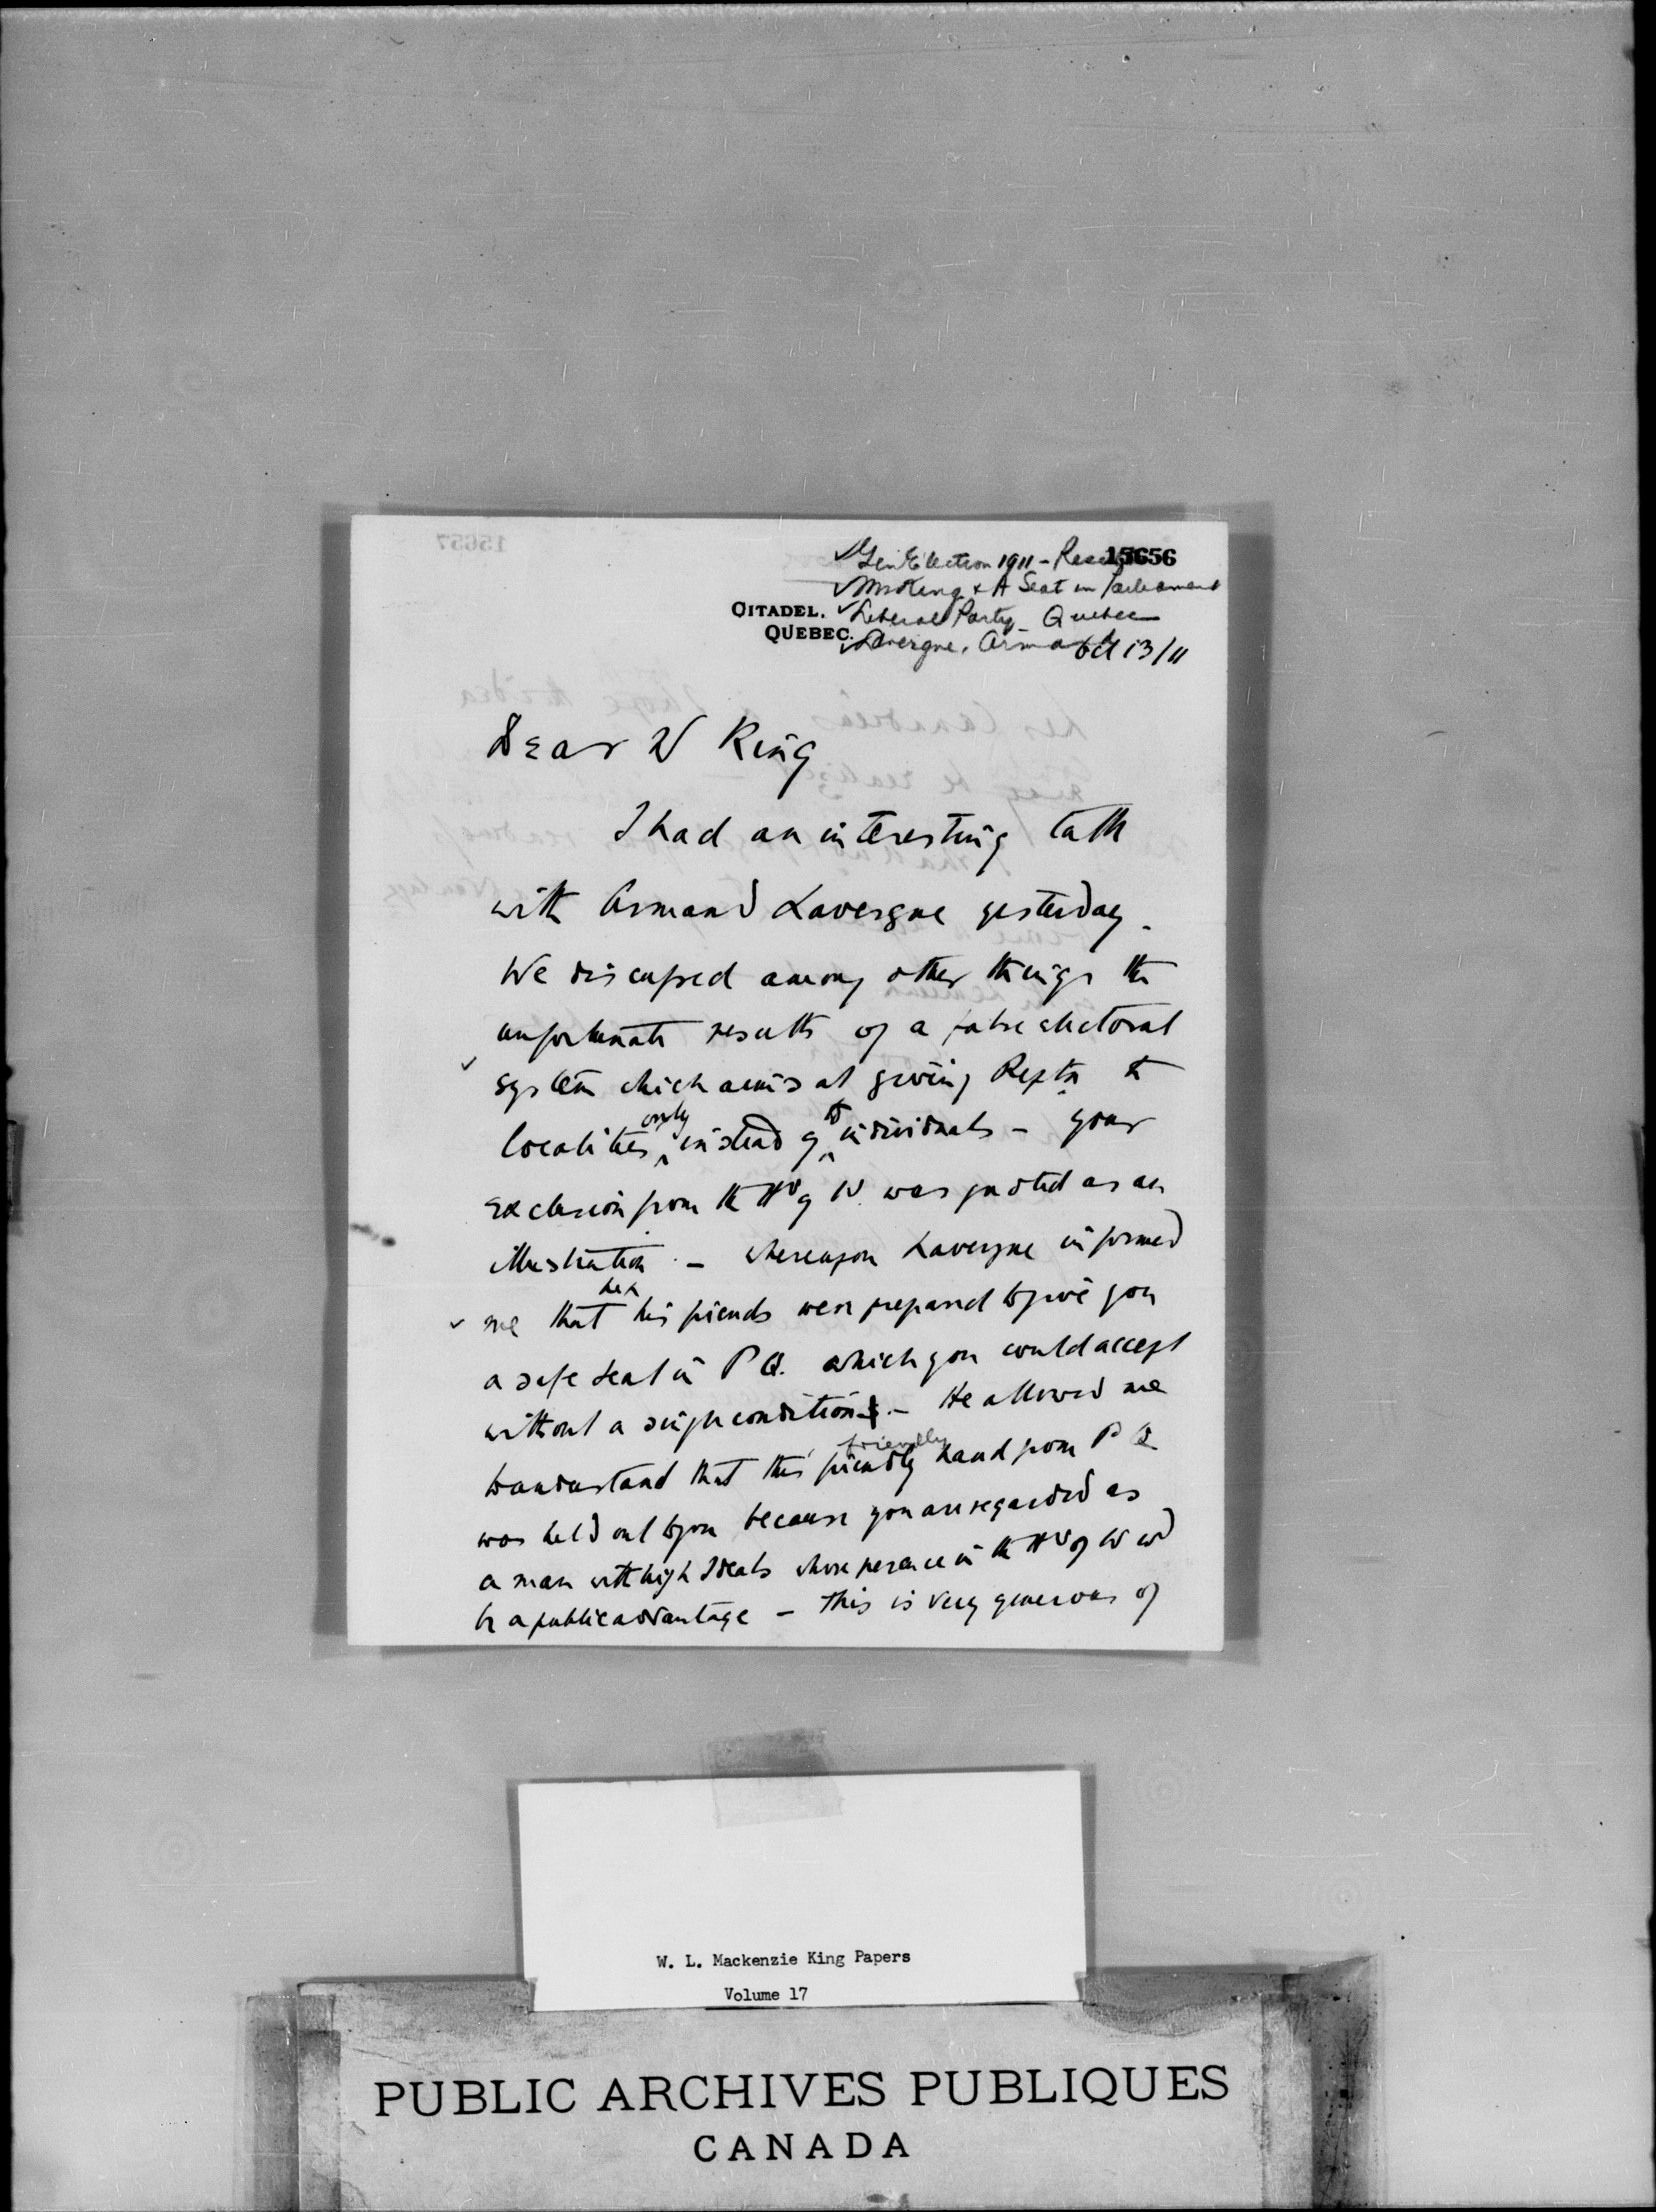 15656
✓ Gen Election 1911 - Results
✓ Mr King & A Seat in Parliament
CITADEL. ✓ Liberal Party - Quebec
QUEBEC. ✓ Lavergne, Armand
Oct 13/11
Dear W King
I had an interesting talk
with Armand Lavergne yesterday.
We discussed among other things the
unfortunate results of a false electoral
system which aims at giving Reptn to
localities only instead of to individuals - your
exclusion from the H of C was quoted as an
illustration - whereupon Lavergne informed
me that he & his friends were prepared to give you
a safe seat in P Q. which you could accept
without a single condition - He allowed me
to understand that this friendly friendly hand from P Q
was held out to you because you are regarded as
a man with high Ideals whose presence in the H of C wd
be a public advantage - This is very generous of
W. L. Mackenzie King Papers
Volume 17
PUBLIC ARCHIVES PUBLIQUES
CANADA